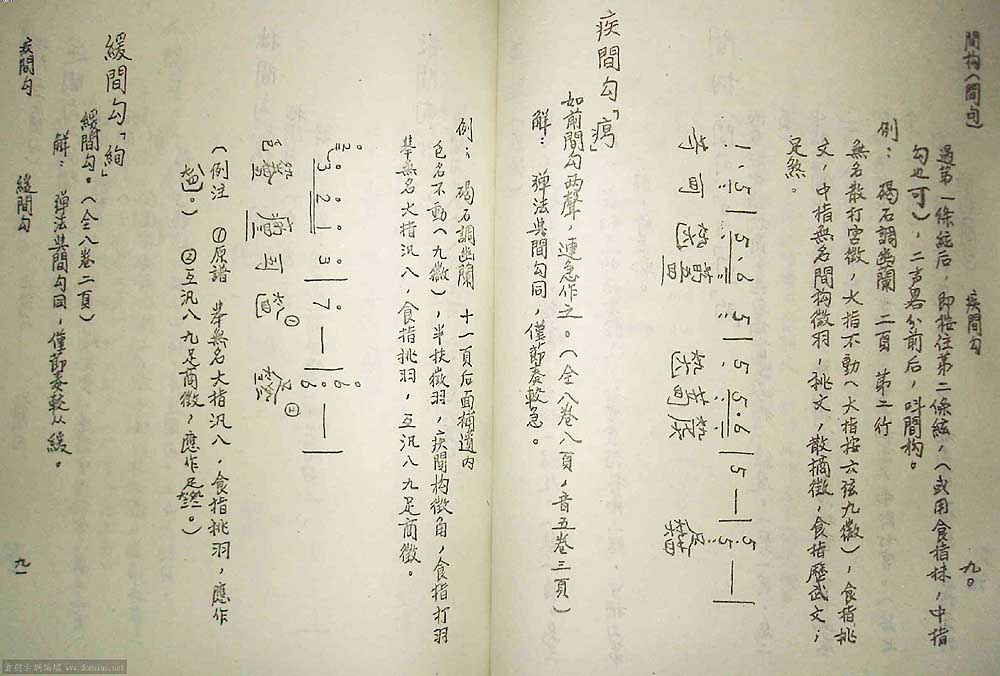 間构（間勾） 疾間勾 九〇
過第一條絃后，即按住第二條絃，（或用食指抹，中指
勾也可），二声畧分前后，叫間构。
例： 碣石調幽蘭，二頁 第二行
無名散打宮徵，大指不動（大指按六弦九徽），食指挑
文，中指無名間构徵羽，挑文，散摘徵，食指歷武文；
足煞。
1·5|5·6 5|5 5·6|5—|5 5—|
疾間勾「㾗」
如前間勾两聲，連急作之。（全八卷八頁，音五卷三頁）
解： 弹法與間勾同，僅節奏較急。
例： 碣石調幽蘭 十一頁后面補遺内
无名不動（九徽），半扶徵羽，疾間构徵角，食指打羽
举無名大指汎八，食指挑羽，互汎八九足商徵。
3 2 1 3|7—|6 6—|
①
②
（例注 ①原譜 举無名大指汎八，食指挑羽，應作
②互汎八九足商徵，應作
緩間勾「絢」
緩間勾。（全八卷二頁）
解： 弹法與間勾同，僅節奏較从緩。
疾間勾 緩間勾 九一
www.domsiao.net